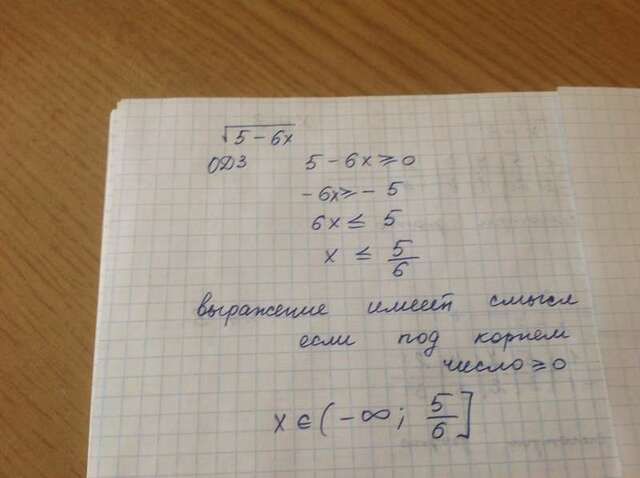 √5-6x
ОДЗ 5-6x≥0
-6x≥-5
6x≤5
x≤5/6
выражение имеет смысл
если под корнем
число≥0
x∈(-∞; 5/6]